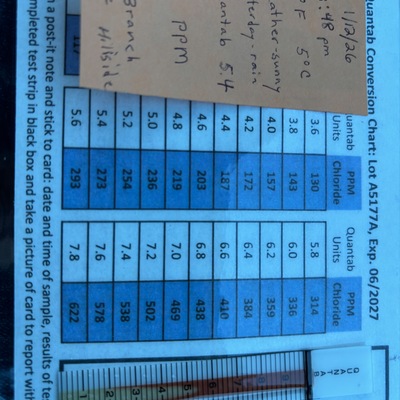 Quantab Conversion Chart: Lot A5177A, Exp. 06/2027
1/12/26
:48 pm
°F 5°C
ather-sunny
terday-rain
antab 5.4
PPM
Branch
Hillside
Quantab Units PPM Chloride Quantab Units PPM Chloride
3.6 130 5.8 314
3.8 143 6.0 336
4.0 157 6.2 359
4.2 172 6.4 384
4.4 187 6.6 410
4.6 203 6.8 438
4.8 219 7.0 469
5.0 236 7.2 502
5.2 254 7.4 538
5.4 273 7.6 578
117 5.6 293 7.8 622
n a post-it note and stick to card: date and time of sample, results of te
mpleted test strip in black box and take a picture of card to report with
QUANTAB